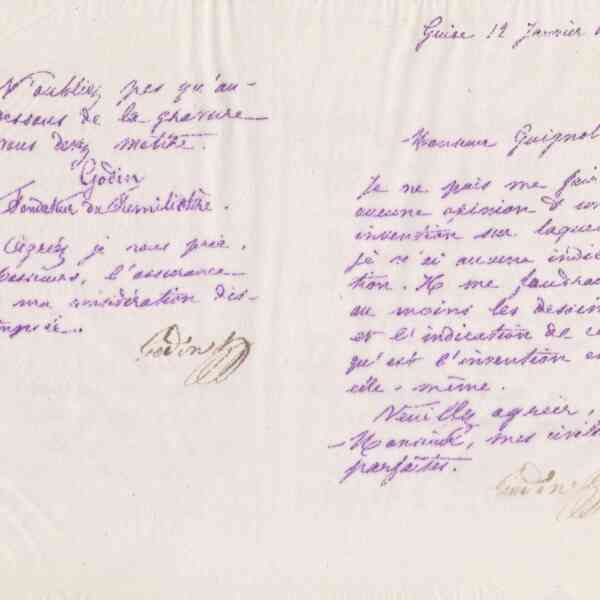 N'oubliez pas qu'au-
dessous de la gravure
vous devez mettre.
Godin
Fondateur du Familistère.
Agréez je vous prie,
Messieurs, l'assurance
ma considération dis-
Godin
Guise 12 Janvier
Monsieur Guignol
Je ne puis me faire
aucune opinion d'un
invention sur laque
je n'ai aucune indic
tion. Il me faudra
au moins les dessin
et l'indication de ce
qu'est l'invention e
elle-même.
Veuillez agréer,
Monsieur, mes civil
parfaites.
Godin